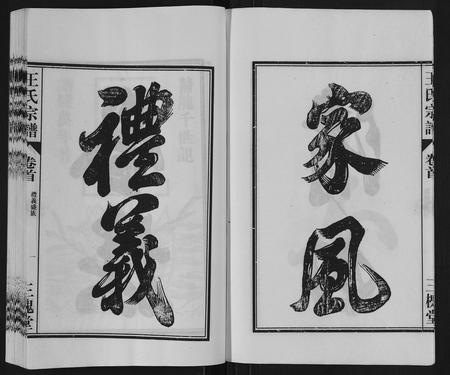 王氏宗譜
卷首
三槐堂
家風
禮義
王氏宗譜
卷首
禮義盛族
一
三槐堂